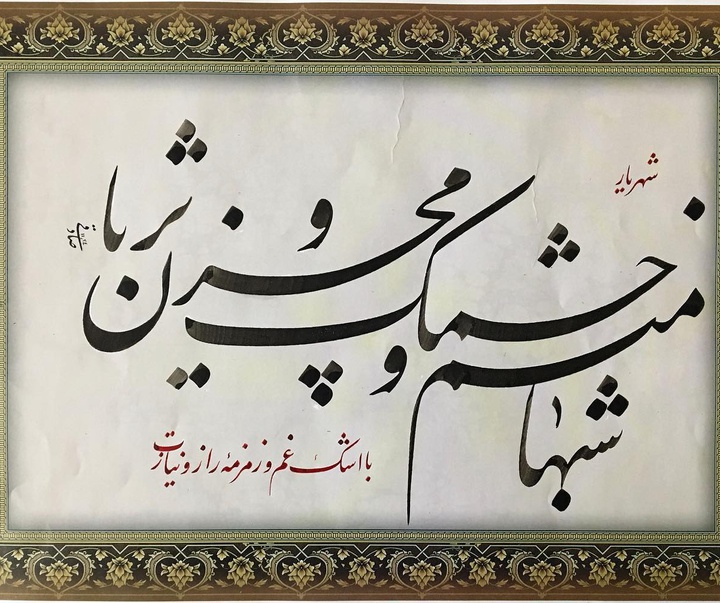 شهریار
شبها منم و چشمک محزون ثریا
با اشک غم و زمزمهٔ راز و نیازت